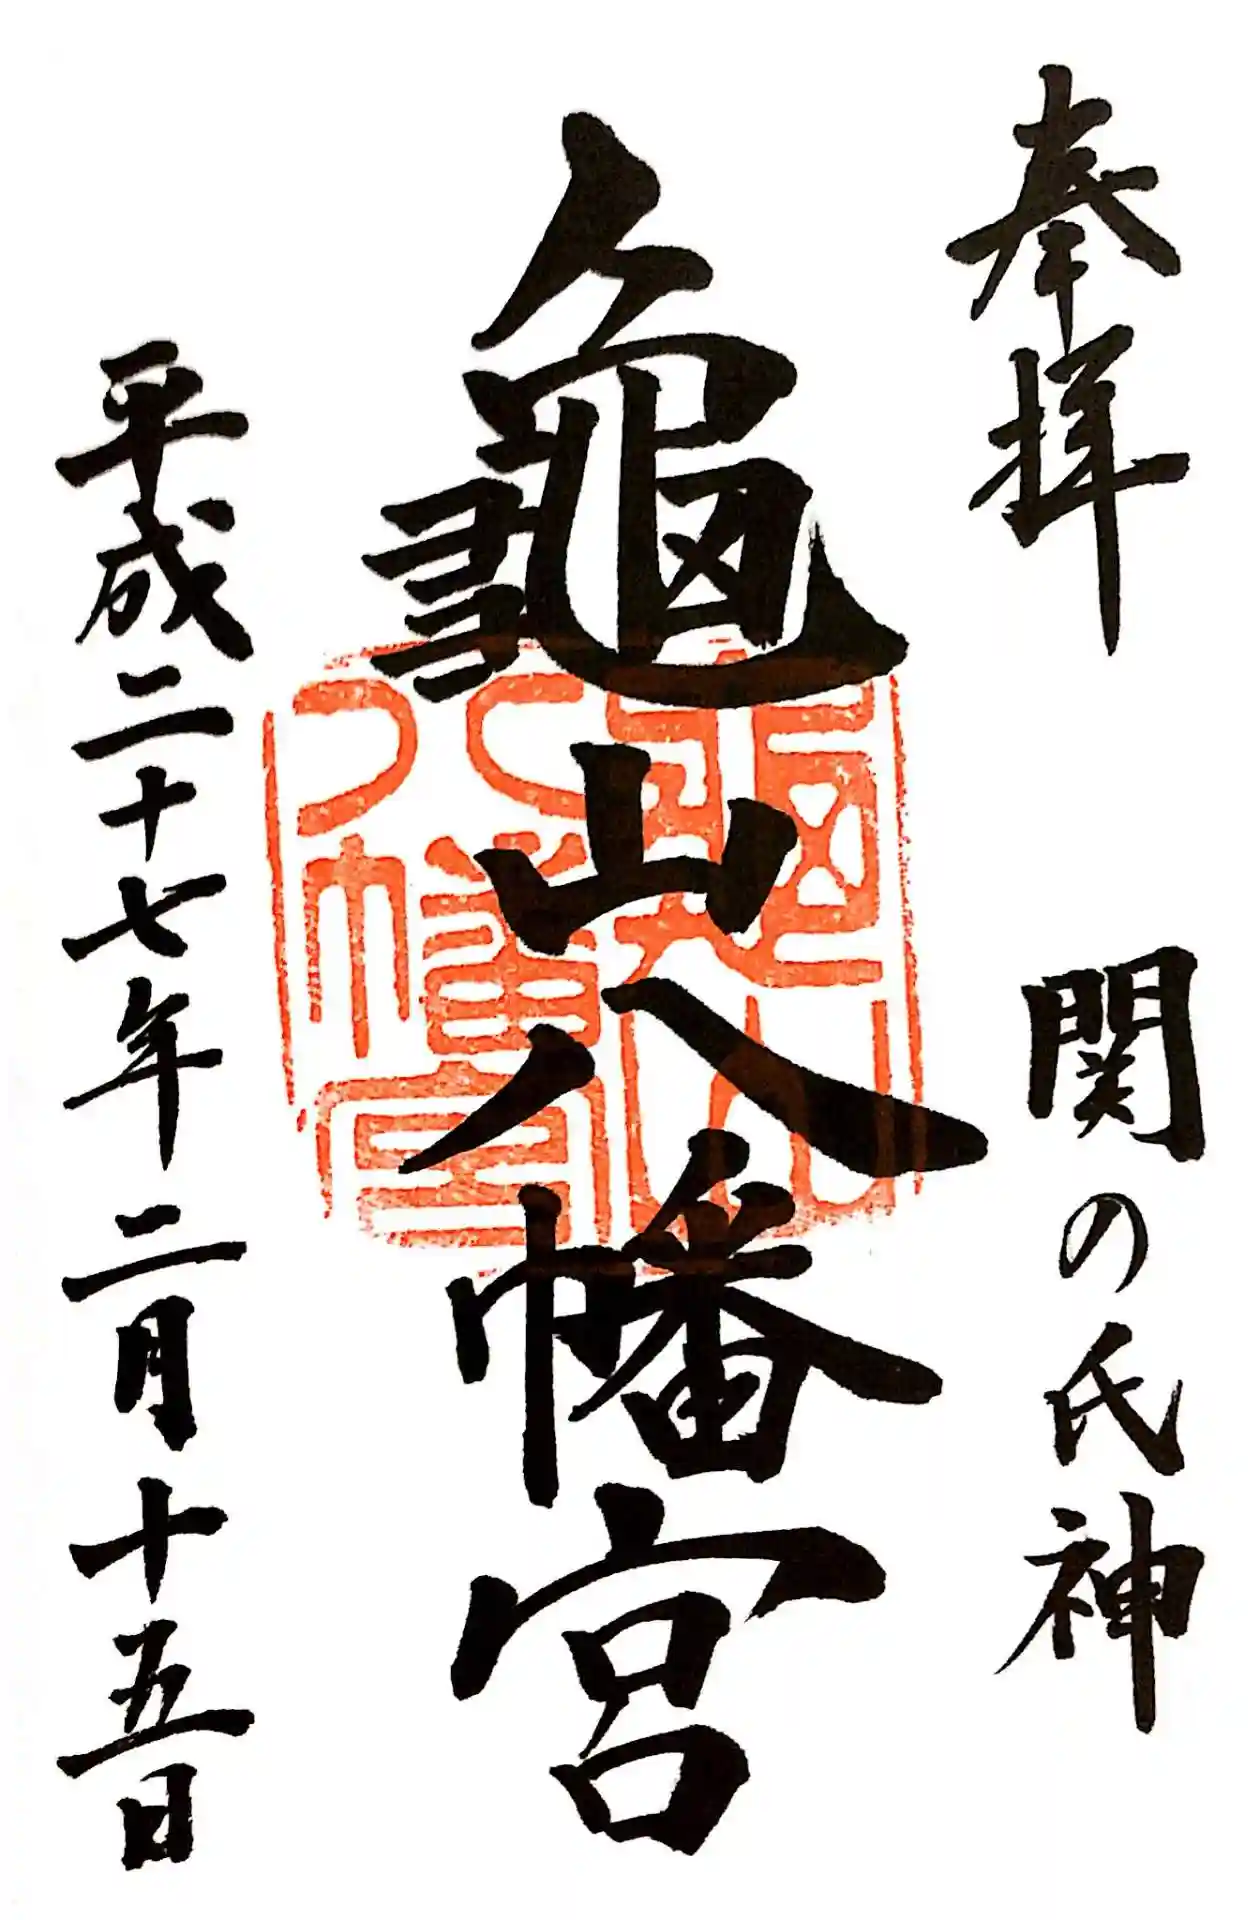 奉拝　関の氏神
龜山八幡宮
平成二十七年二月十五日
龜山
八幡宮